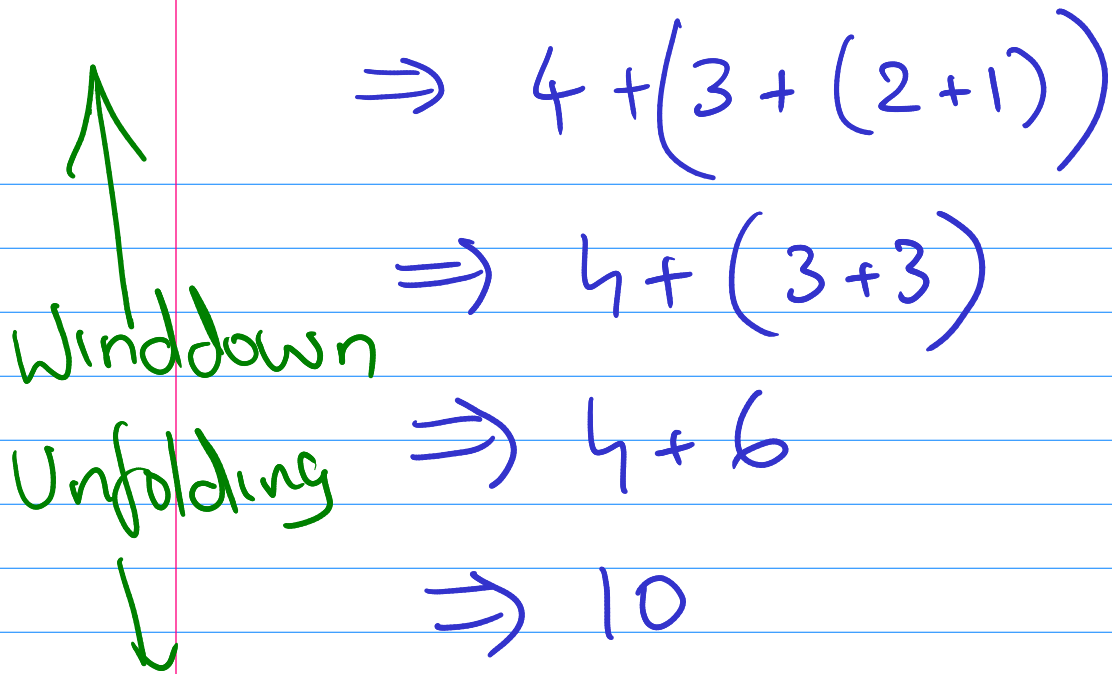 ⇒ 4 + (3 + (2 + 1))
⇒ 4 + (3 + 3)
Winddown
⇒ 4 + 6
Unfolding
⇒ 10